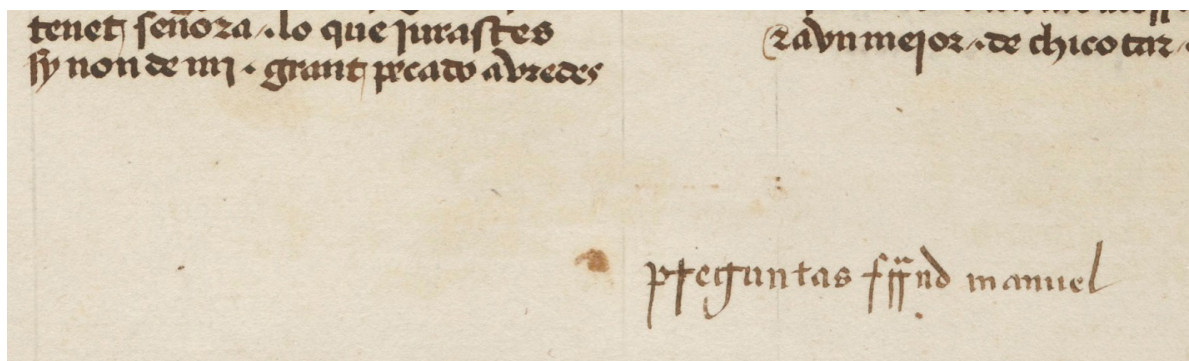 tenet señora /. lo que jurastes
sy non de mi . grant pecado avredes
τ avn mejor /. de chico tar .
preguntas ffrnd manuel